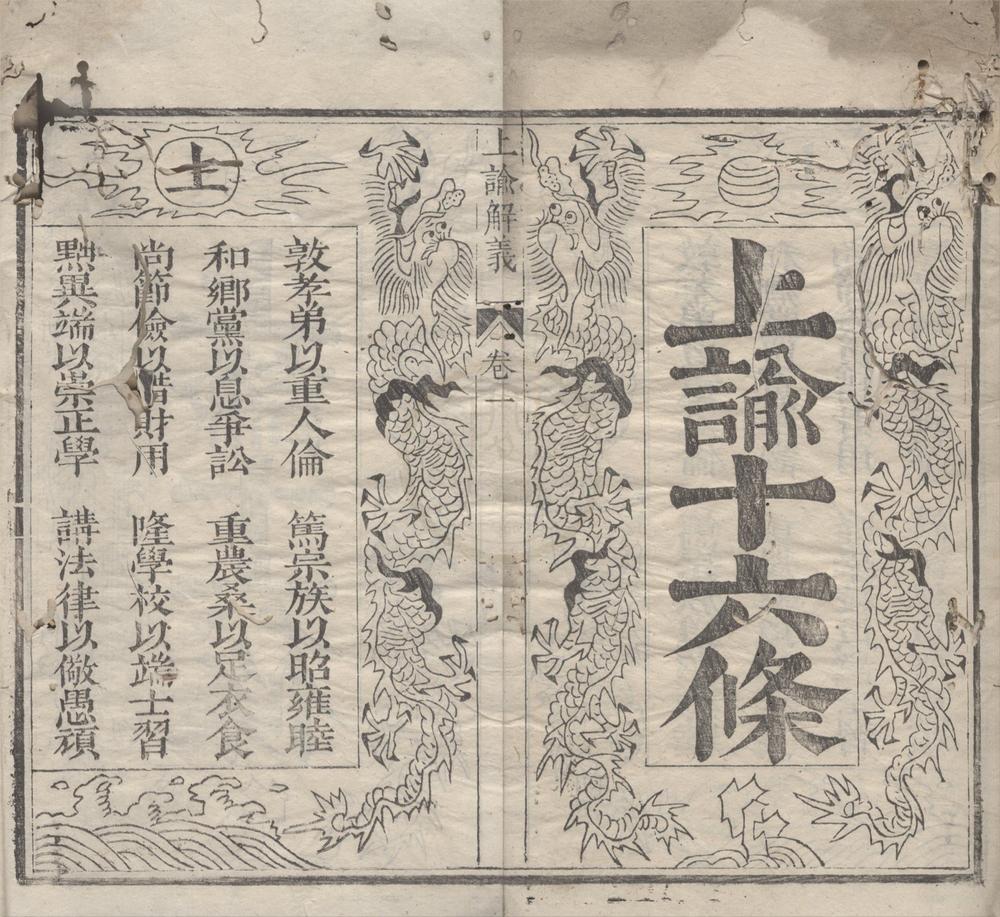 上諭十六條
上諭解義
卷一
敦孝弟以重人倫 篤宗族以昭雍睦
和鄉黨以息爭訟 重農桑以足衣食
尚節儉以惜財用 隆學校以端士習
黜異端以崇正學 講法律以儆愚頑